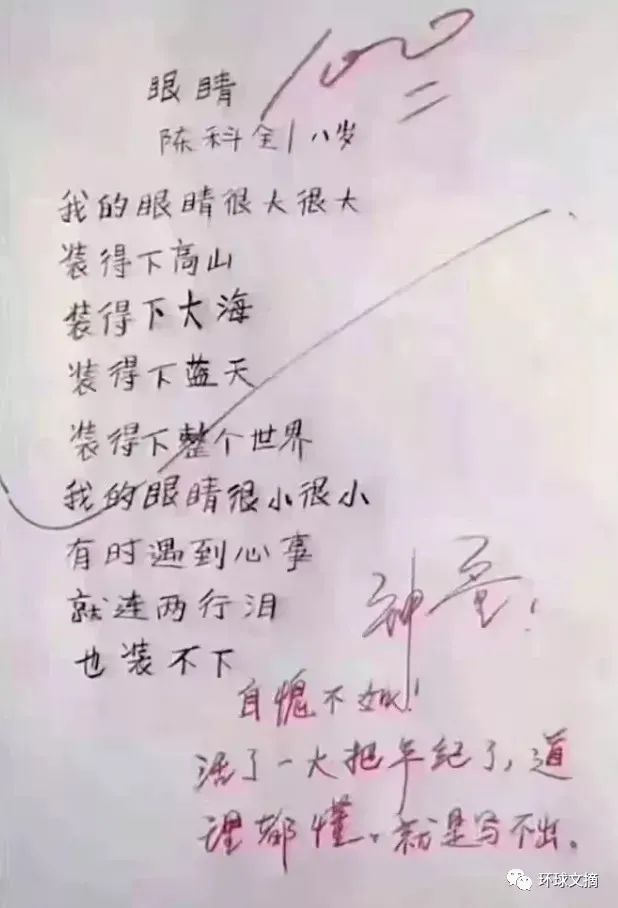 眼睛
100
陈科全 八岁
我的眼睛很大很大
装得下高山
装得下大海
装得下蓝天
装得下整个世界
我的眼睛很小很小
有时遇到心事
就连两行泪
也装不下
神童!
自愧不如!
活了一大把年纪了,道
理都懂。就是写不出。
环球文摘